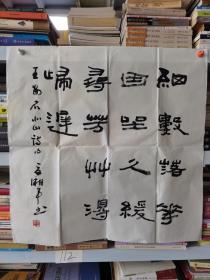 細數落花
因坐久緩
尋芳草得
歸遲
王安石北山詩句
112